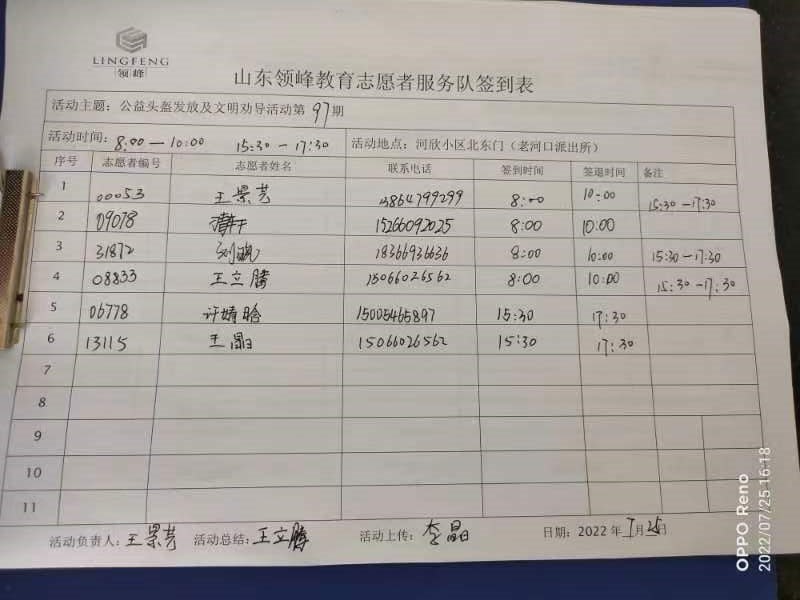 LINGFENG
领峰
山东领峰教育志愿者服务队签到表
活动主题：公益头盔发放及文明劝导活动第97期
活动时间：8:00—10:00 15:30-17:30 活动地点：河欣小区北东门（老河口派出所）
序号 志愿者编号 志愿者姓名 联系电话 签到时间 签退时间 备注
1 00053 王景芳 13864799299 8:00 10:00 15:30-17:30
2 09078 15266092025 8:00 10:00
3 31872 刘 18366936636 8:00 10:00 15:30-17:30
4 08833 王立腾 15066026562 8:00 10:00 15:30-17:30
5 06778 许婧晗 15005465897 15:30 17:30
6 13115 王晶 15066026562 15:30 17:30
7
8
9
10
11
活动负责人：王景芳 活动总结：王立腾 活动上传：李晶 日期：2022年7月25日
OPPO Reno
2022/07/25 16:18